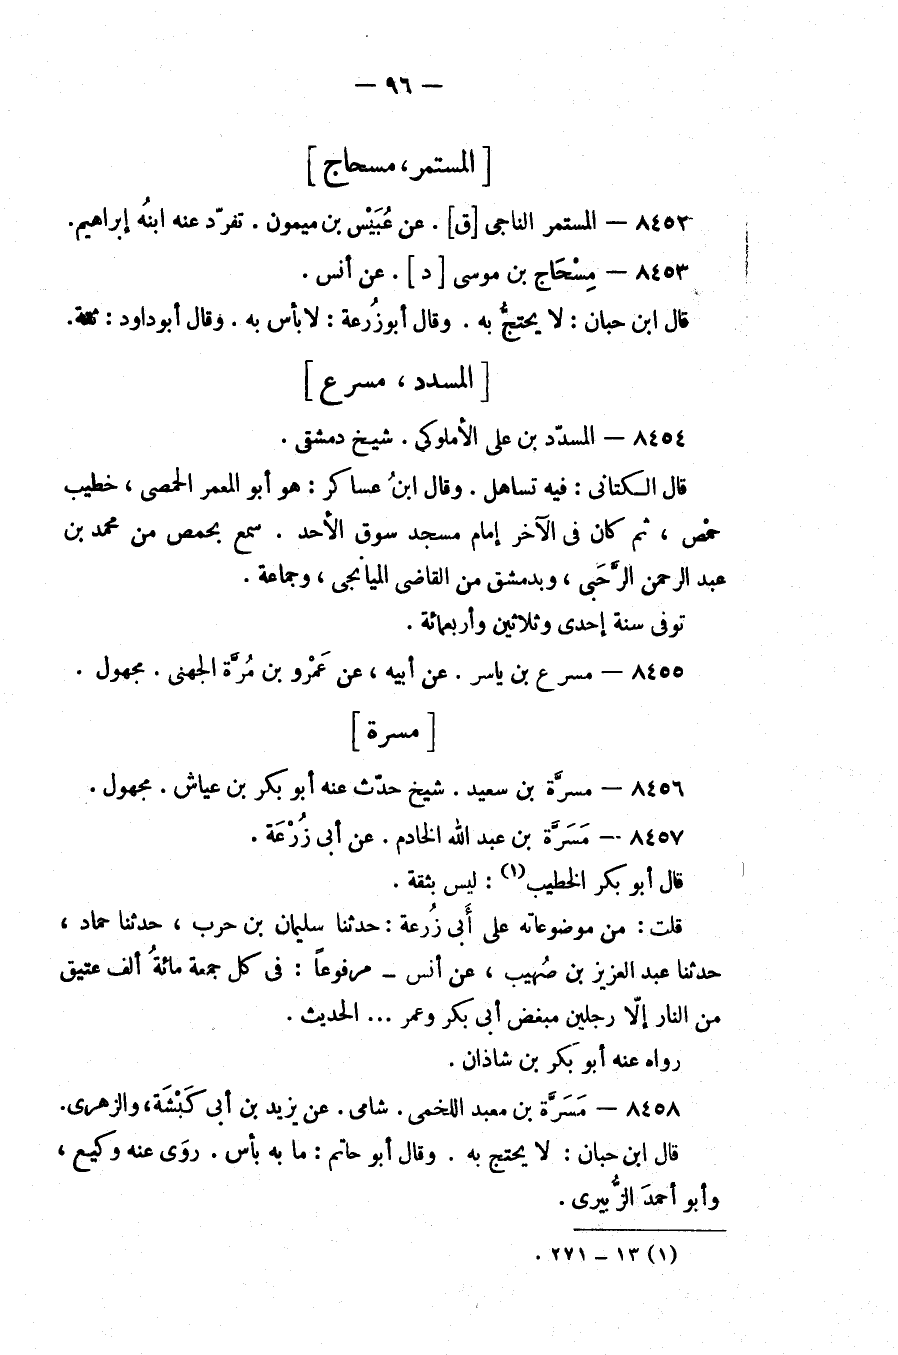 — ٩٦ —
[ المستمر، مسحاج ]
٨٤٥٢ — المستمر الناجى [ق] . عن عُبَيْس بن ميمون . تفرّد عنه ابنُه إبراهيم.
٨٤٥٣ — مِسْحَاج بن موسى [ د ] . عن أنس .
قال ابن حبان : لا يحتجُّ به . وقال أبوزُرعة : لابأس به . وقال أبوداود : ثقة.
[ المسدد ، مسرع ]
٨٤٥٤ — المسدّد بن على الأملوكي . شيخ دمشقى .
قال الكتانى : فيه تساهل . وقال ابنُ عساكر : هو أبو المعمر الحمصى ، خطيب
حمْص ، ثم كان فى الآخر إمام مسجد سوق الأحد . سمع بحمص من محمد بن
عبد الرحمن الرَّحَبى ، وبدمشق من القاضى الميانجى ، وجماعة .
توفى سنة إحدى وثلاثين وأربعمائة .
٨٤٥٥ — مسرع بن ياسر . عن أبيه ، عن عَمْرو بن مُرَّة الجهنى . مجهول .
[ مسرة ]
٨٤٥٦ — مسرَّة بن سعيد . شيخ حدّث عنه أبو بكر بن عياش . مجهول .
٨٤٥٧ — مَسَرَّة بن عبد الله الخادم . عن أبى زُرْعَة .
قال أبو بكر الخطيب(١) : ليس بثقة .
قلت : من موضوعاته على أَبى زُرعة : حدثنا سليمان بن حرب ، حدثنا حماد ،
حدثنا عبد العزيز بن صُهيب ، عن أنس – مرفوعاً : فى كل جمعة مائةُ ألف عتيق
من النار إلّا رجلين مبغض أبى بكر وعمر ... الحديث .
رواه عنه أبو بكر بن شاذان .
٨٤٥٨ — مَسَرَّة بن معبد اللخمى . شامى . عن يزيد بن أبى كَبْشَة، والزهرى.
قال ابن حبان : لا يحتج به . وقال أبو حاتم : ما به بأس . روَى عنه وكيع ،
وأبو أحمدَ الزُّبيرى .
(١) ١٣ – ٢٧١ .